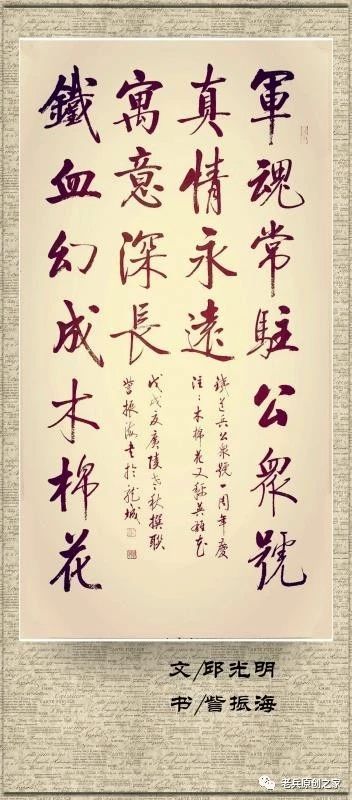 軍魂常駐公眾號
真情永遠
鐵道兵公眾號一周年慶
注：木棉花又稱英雄花
寓意深長
戊戌夏廣陵老秋撰聯
訾振海書於龍城
鐵血幻成木棉花
文/邱光明
书/訾振海
老兵原创之家